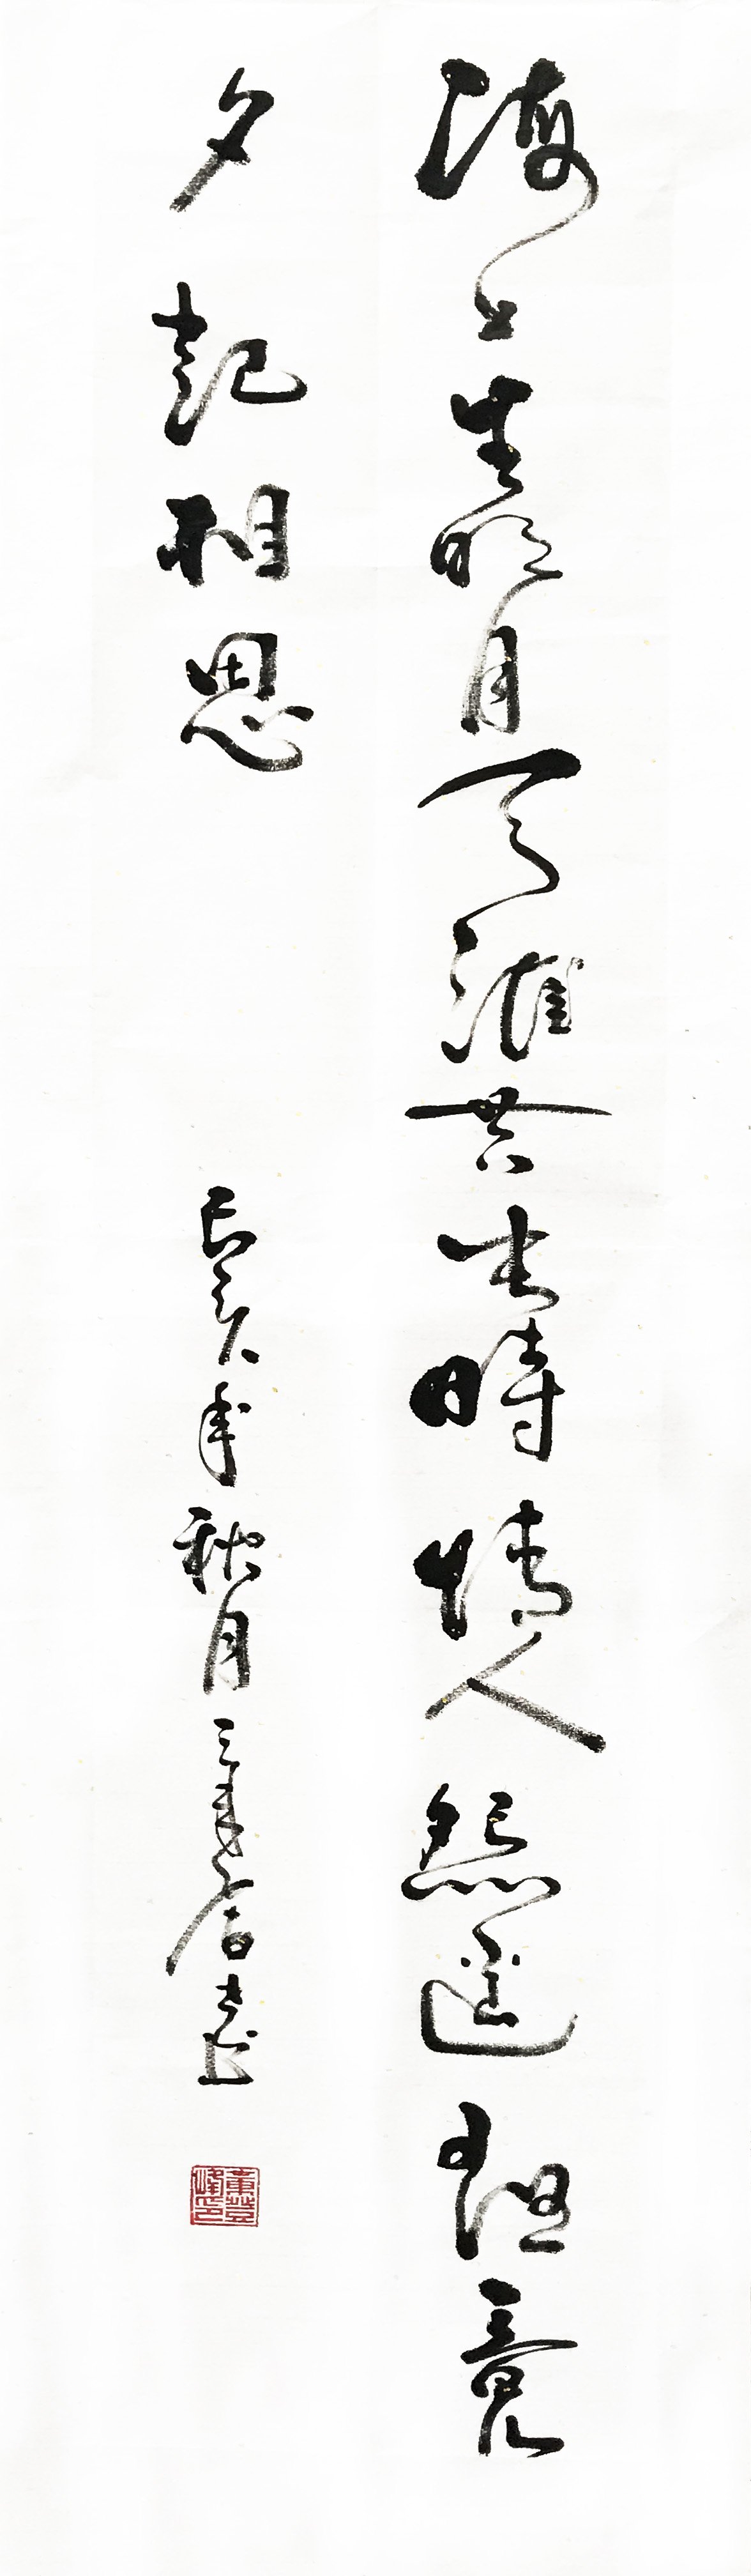 海上生明月天涯共此時情人怨遥夜竟
夕起相思
己亥年秋月三居士